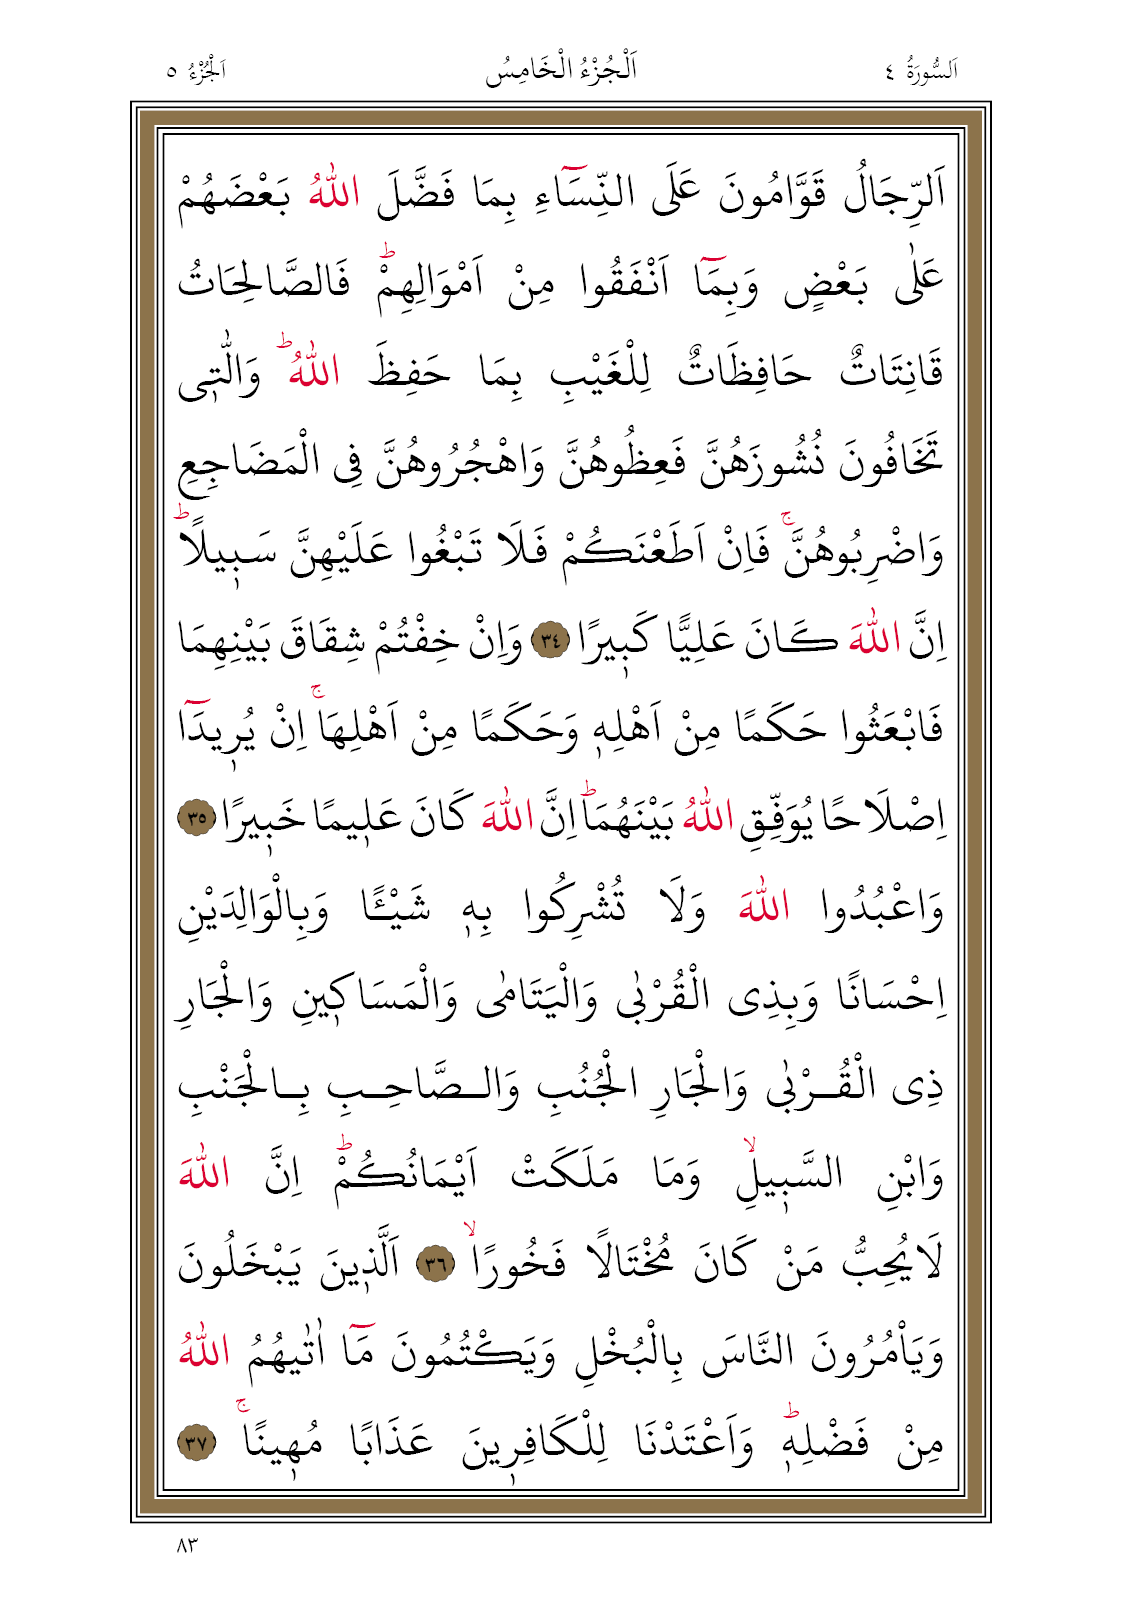 اَلسُّورَةُ ٤ اَلْجُزْءُ الْخَامِسُ اَلْجُزْءُ ٥
اَلرِّجَالُ قَوَّامُونَ عَلَى النِّسَٓاءِ بِمَا فَضَّلَ اللّٰهُ بَعْضَهُمْ
عَلٰى بَعْضٍ وَبِمَٓا اَنْفَقُوا مِنْ اَمْوَالِهِمْۜ فَالصَّالِحَاتُ
قَانِتَاتٌ حَافِظَاتٌ لِلْغَيْبِ بِمَا حَفِظَ اللّٰهُۜ وَالّٰت۪ى
تَخَافُونَ نُشُوزَهُنَّ فَعِظُوهُنَّ وَاهْجُرُوهُنَّ فِى الْمَضَاجِعِ
وَاضْرِبُوهُنَّۚ فَاِنْ اَطَعْنَكُمْ فَلَا تَبْغُوا عَلَيْهِنَّ سَب۪يلًاۜ
اِنَّ اللّٰهَ كَانَ عَلِيًّا كَب۪يرًا ﴿٣٤﴾ وَاِنْ خِفْتُمْ شِقَاقَ بَيْنِهِمَا
فَابْعَثُوا حَكَمًا مِنْ اَهْلِه۪ وَحَكَمًا مِنْ اَهْلِهَاۚ اِنْ يُر۪يدَٓا
اِصْلَاحًا يُوَفِّقِ اللّٰهُ بَيْنَهُمَاۜ اِنَّ اللّٰهَ كَانَ عَل۪يمًا خَب۪يرًا ﴿٣٥﴾
وَاعْبُدُوا اللّٰهَ وَلَا تُشْرِكُوا بِه۪ شَيْـًٔا وَبِالْوَالِدَيْنِ
اِحْسَانًا وَبِذِى الْقُرْبٰى وَالْيَتَامٰى وَالْمَسَاك۪ينِ وَالْجَارِ
ذِى الْقُرْبٰى وَالْجَارِ الْجُنُبِ وَالصَّاحِبِ بِالْجَنْبِ
وَابْنِ السَّب۪يلِۙ وَمَا مَلَكَتْ اَيْمَانُكُمْۜ اِنَّ اللّٰهَ
لَا يُحِبُّ مَنْ كَانَ مُخْتَالًا فَخُورًاۙ ﴿٣٦﴾ اَلَّذ۪ينَ يَبْخَلُونَ
وَيَاْمُرُونَ النَّاسَ بِالْبُخْلِ وَيَكْتُمُونَ مَٓا اٰتٰيهُمُ اللّٰهُ
مِنْ فَضْلِه۪ۜ وَاَعْتَدْنَا لِلْكَافِر۪ينَ عَذَابًا مُه۪ينًاۚ ﴿٣٧﴾
٨٣